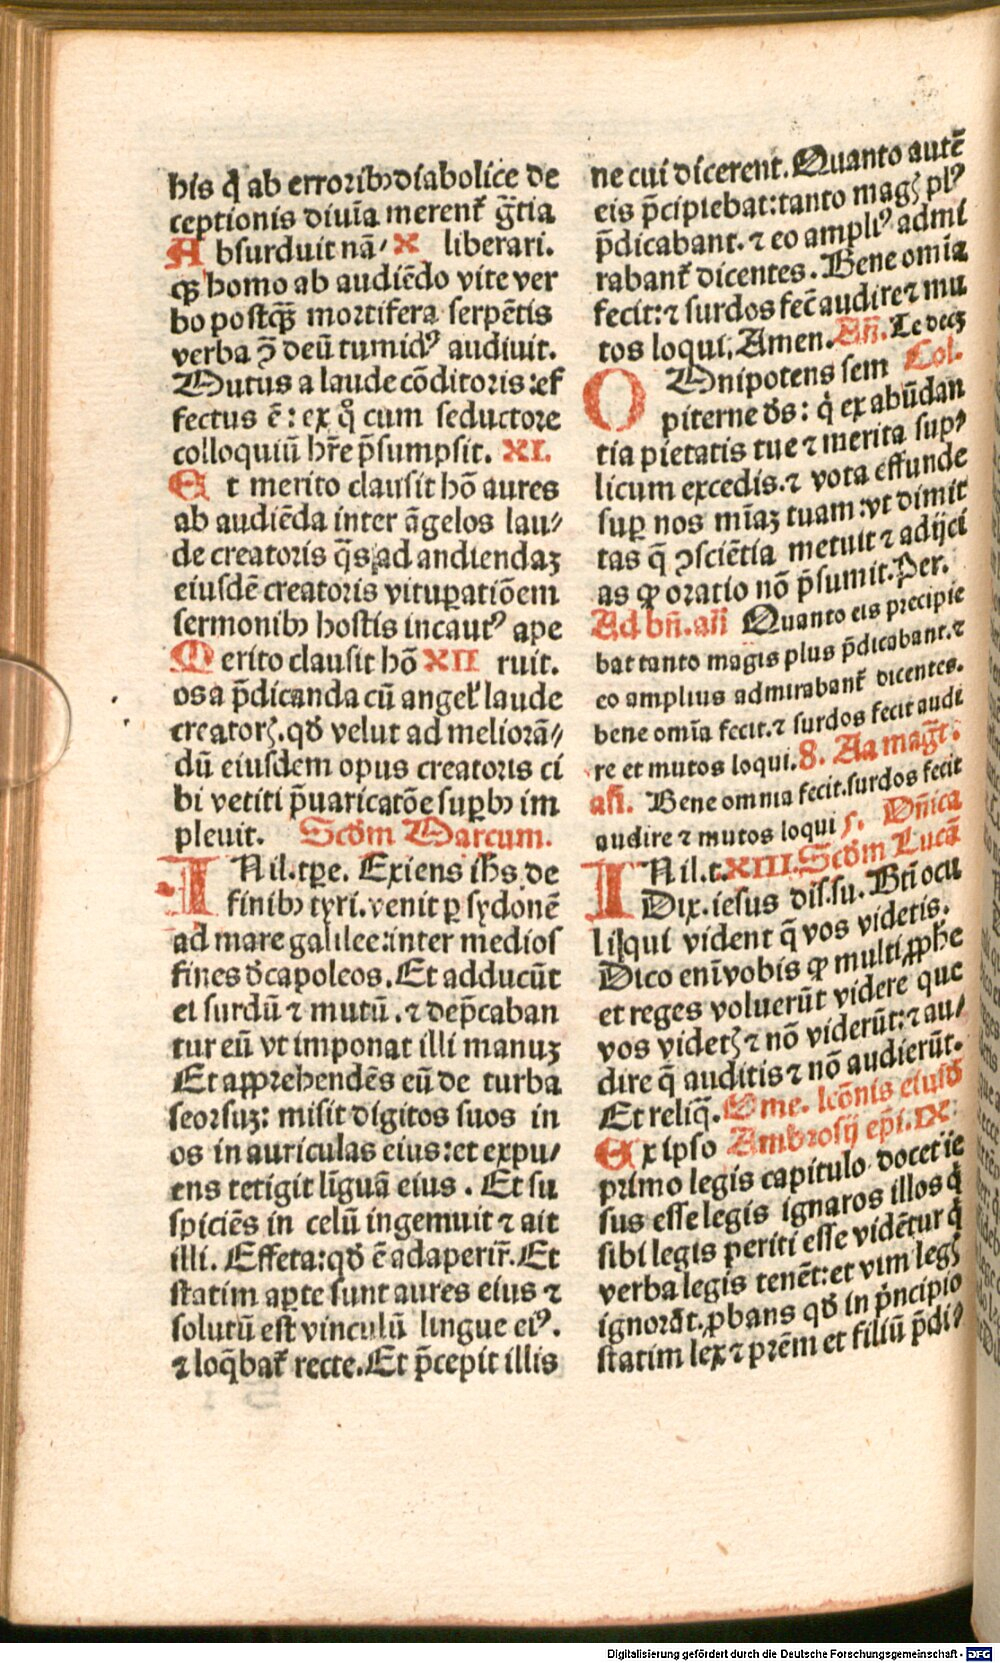 his q̄ ab erroribꝰ diabolice de
ceptionis diuīa merenť gr̄tia
Absurdu it nā⸗ X liberari.
qꝫ homo ab audiēdo vite ver
bo postꝙꝫ mortifera serpētis
verba ꝯ̄ deū tumidꝰ audiuit.
Mutus a laude cōditoris: ef
fectus ē: ex qͦ cum seductore
colloquiū hr̄e p̄sumpsit. XI.
Et merito clausit hō aures
ab audiēda inter āgelos lau⸗
de creatoris q̄s ad andiendaꝫ
eiusdē creatoris vituꝑatiōem
sermonibꝰ hostis incautꝰ ape
Merito clausit hō XII ruit.
os a p̄dicanda cū angel' laude
creatorꝭ. qđ velut ad meliorā⸗
dū eiusdem opus creatoris ci
bi vetiti p̄uaricatōe suꝑbꝰ im
pleuit. Scđm Marcum.
IN il. tꝑe. Exiens ih̄s de
finibꝰ tyri. venit ꝑ sydonē
ad mare galilee: inter medios
fines đcapoleos. Et adducūt
ei surdū ⁊ mutū. ⁊ dep̄caban
tur eū vt imponat illi manuꝫ
Et apprehendēs eū de turba
seorsuꝫ: misit digitos suos in
os in auriculas eius: et expu⸗
ens tetigit līguā eius. Et su
spiciēs in celū ingemuit ⁊ ait
illi. Effeta: qđ ē adaperir̄. Et
statim aꝑte sunt aures eius ⁊
solutū est vinculū lingue eiꝰ.
⁊ loq̄bať recte. Et p̄cepit illis
ne cui dicerent. Quanto autē
eis p̄cipiebat: tanto magꝭ plꝰ
p̄dicabant. ⁊ eo ampliꝰ admi
rabanť dicentes. Bene omīa
fecit: ⁊ surdos fec̄ audire ⁊ mu
tos loqui. Amen. Añ. Te decꝫ
Omnipotens sem Col.
piterne đs: q̄ ex abūdan
tia pietatis tue ⁊ merita supꝰ
licum excedis. ⁊ vota effunde
suꝑ nos mīaꝫ tuam: vt dimit
tas q̄ ꝯsciētia metuit ⁊ adijci
as qꝫ oratio nō p̄sumit. Per.
Ad bñ. añ Quanto eis precipie
bat tanto magis plus p̄dicabant. ⁊
eo amplius admirabanť dicentes.
bene omīa fecit. ⁊ surdos fecit audi
re et mutos loqui. 8. Aa mag̅t.
añ. Bene omnia fecit. surdos fecit
audire ⁊ mutos loqui s. Dñica
IN il. t. XIII. Scđm Lucā
Dix. iesus dis. su. Bti ocu
li qui vident q̄ vos videtis.
Dico enī vobis qꝫ multi ꝓphē
et reges voluerūt videre que
vos videtꝭ ⁊ nō viderūt: ⁊ au⸗
dire q̄ auditis ⁊ nō audierūt.
Et reliq̄. Ome. lcōnis eiusđ
Ex ipso Ambrosij ep̄i. IX
primo legis capitulo docet ie
sus esse legis ignaros illos q̄
sibi legis periti esse vidētur q̄
verba legis tenēt: et vim legꝭ
ignorāt. ꝓbans qđ in p̄ncipio
statim lex ⁊ prēm et filiū p̄diꝰ
Digitalisierung gefördert durch die Deutsche Forschungsgemeinschaft - DFG